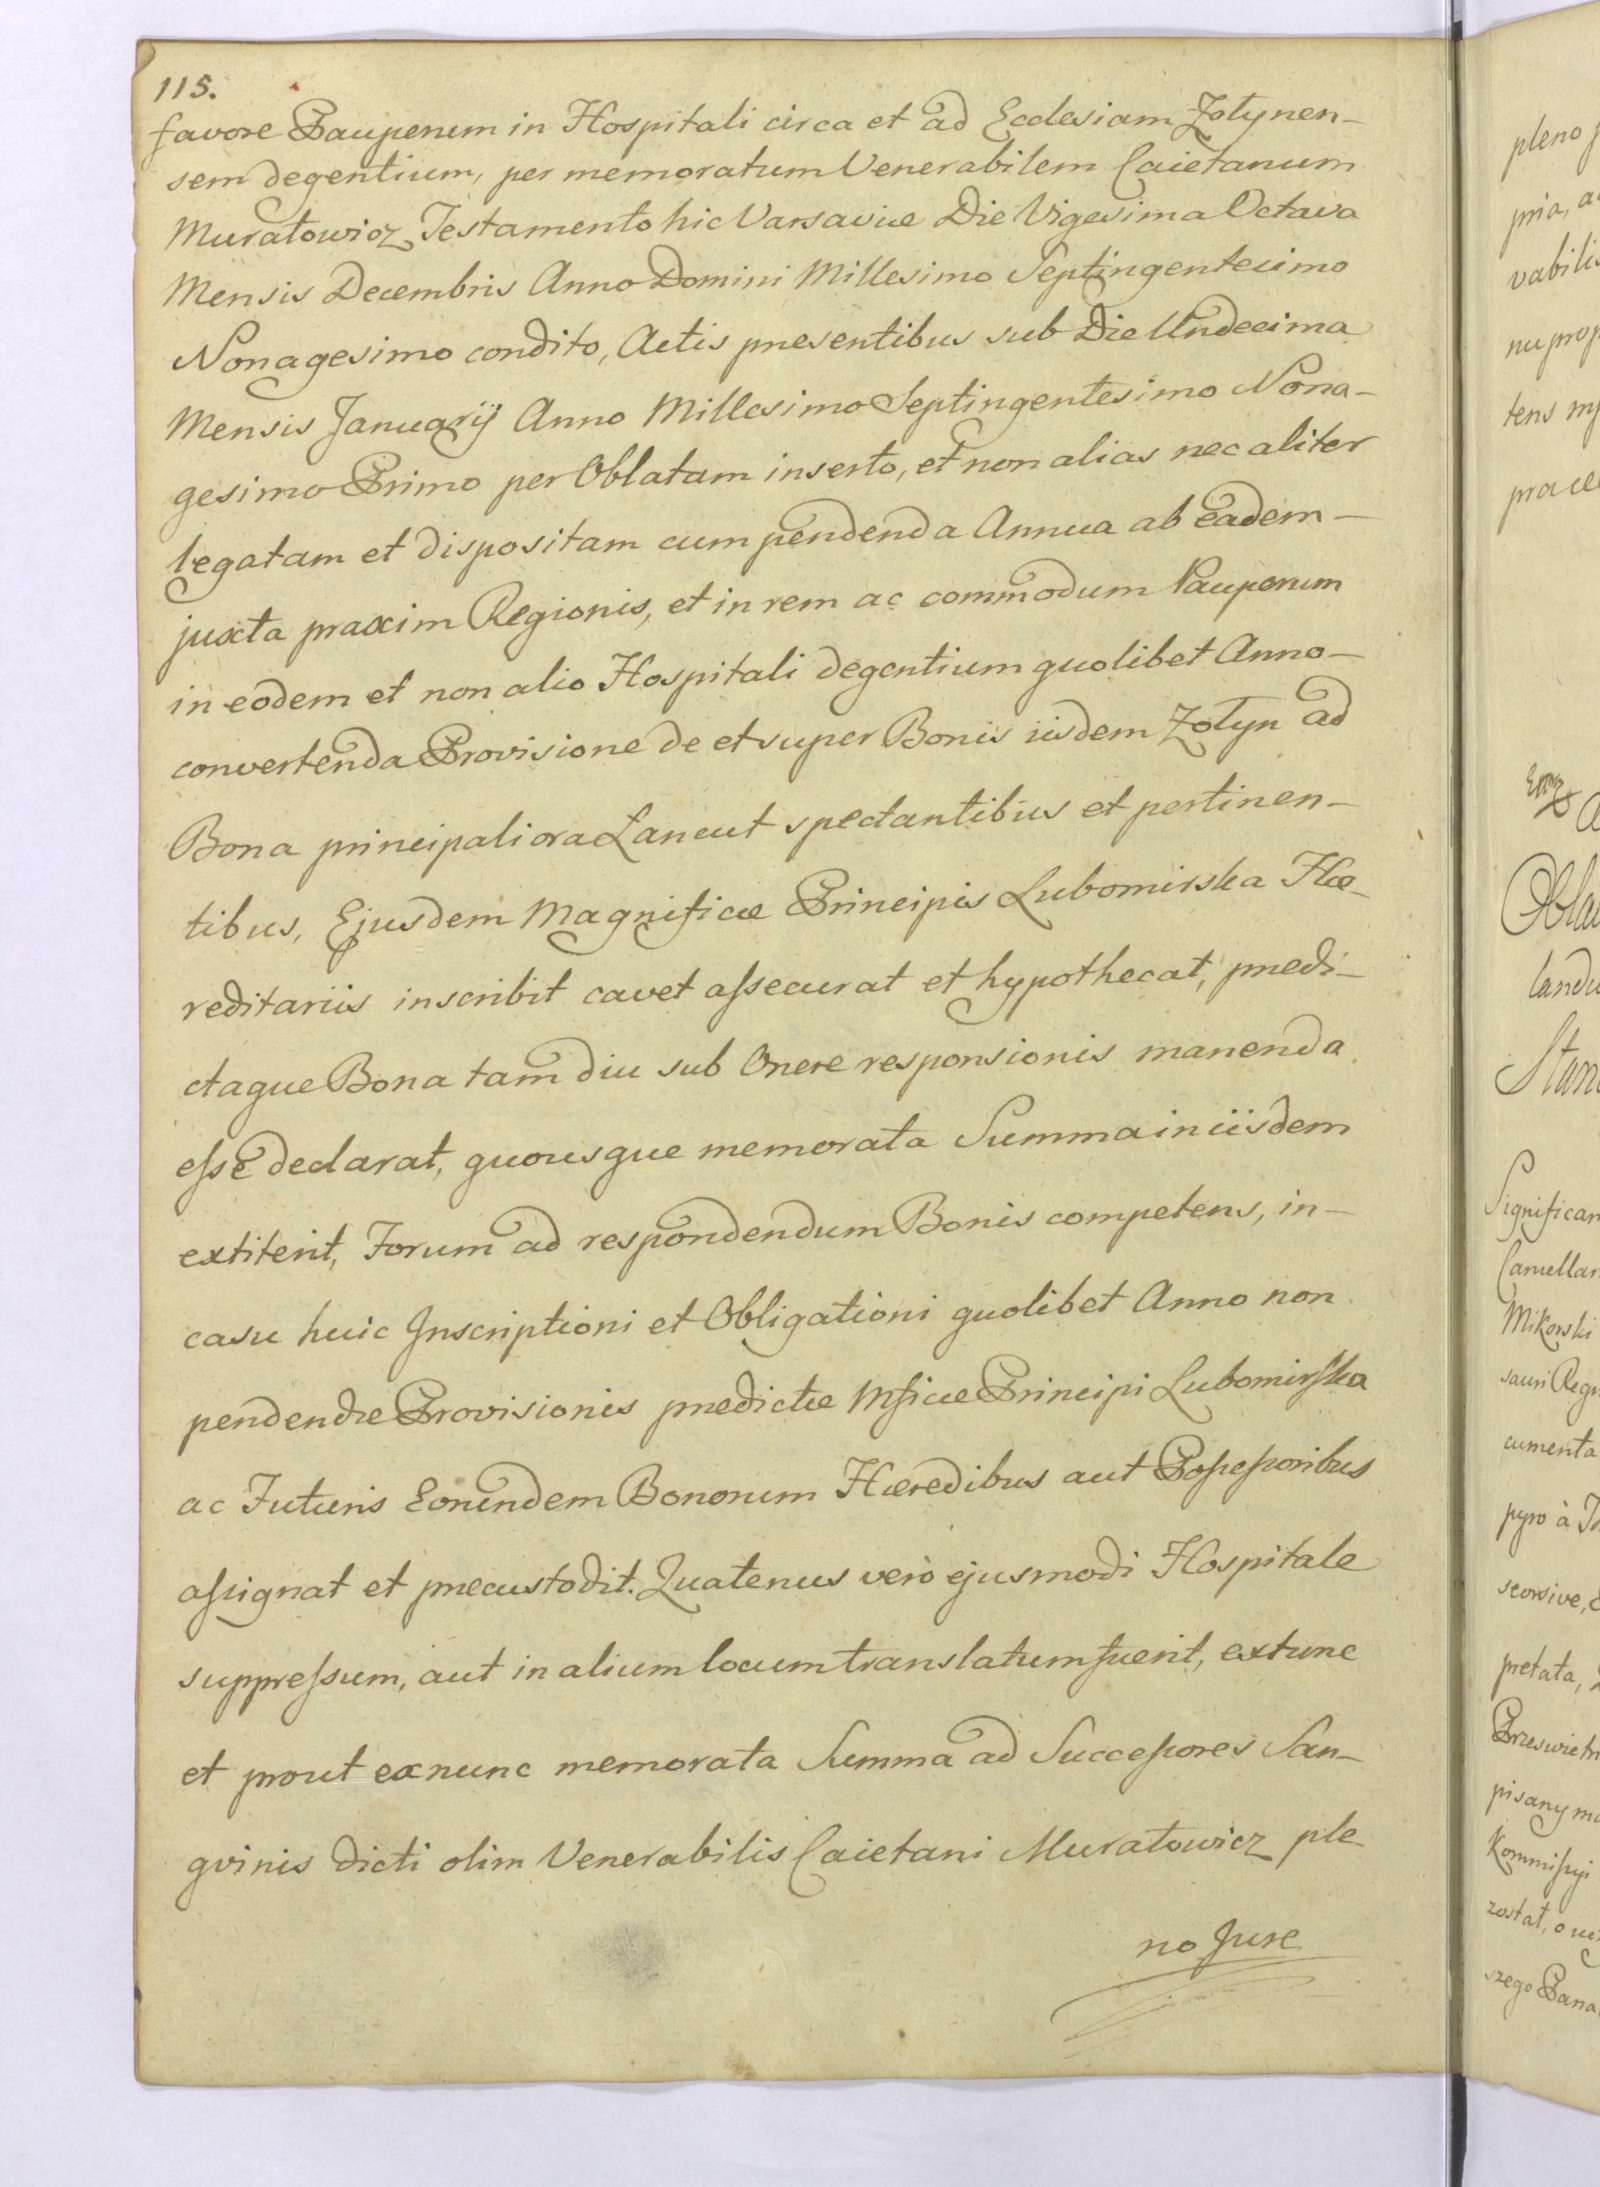 115.
favore Pauperum in Hospitali circa et ad Ecclesiam Zołynen-
sem degentium, per memoratum Venerabilem Caietanum
Muratowicz Testamento hic Varsaviæ Die Vigesima Octava
Mensis Decembris Anno Domini Millesimo Septingentesimo
Nonagesimo condito, Actis præsentibus sub Die Undecima
Mensis Januarij Anno Millesimo Septingentesimo Nona-
gesimo Primo per Oblatam inserto, et non alias nec aliter
legatam et dispositam cum pendenda Annua ab eadem-
juxta praxim Regionis, et in rem ac commodum Pauperum
in eodem et non alio Hospitali degentium quolibet Anno-
convertenda Provisione de et super Bonis iisdem Zołyn ad
Bona principaliora Łancut spectantibus et pertinen-
tibus, Ejusdem Magnificæ Principis Lubomirska Hæ-
reditariis inscribit cavet assecurat et hypothecat, prædi-
ctaque Bona tam diu sub Onere responsionis manenda
esse declarat, quousque memorata Summa in iisdem
extiterit, Forum ad respondendum Bonis competens, in-
casu huic Inscriptioni et Obligationi quolibet Anno non
pendendæ Provisionis prædictæ Mficæ Principi Lubomirska
ac Futuris Eorundem Bonorum Hæredibus aut Possessoribus
assignat et præcustodit. Quatenus verò ejusmodi Hospitale
suppressum, aut in alium locum translatum fuerit, extunc
et prout exnunc memorata Summa ad Successores San-
gvinis dicti olim Venerabilis Caietani Muratowicz ple-
no Jure
pleno
vabilis
tens
Obla
Stan
Significan
Mikorski
cumenta
pyro à
seorsive,
pretata,
pisany
Kommissyi
został, o
szego Pana